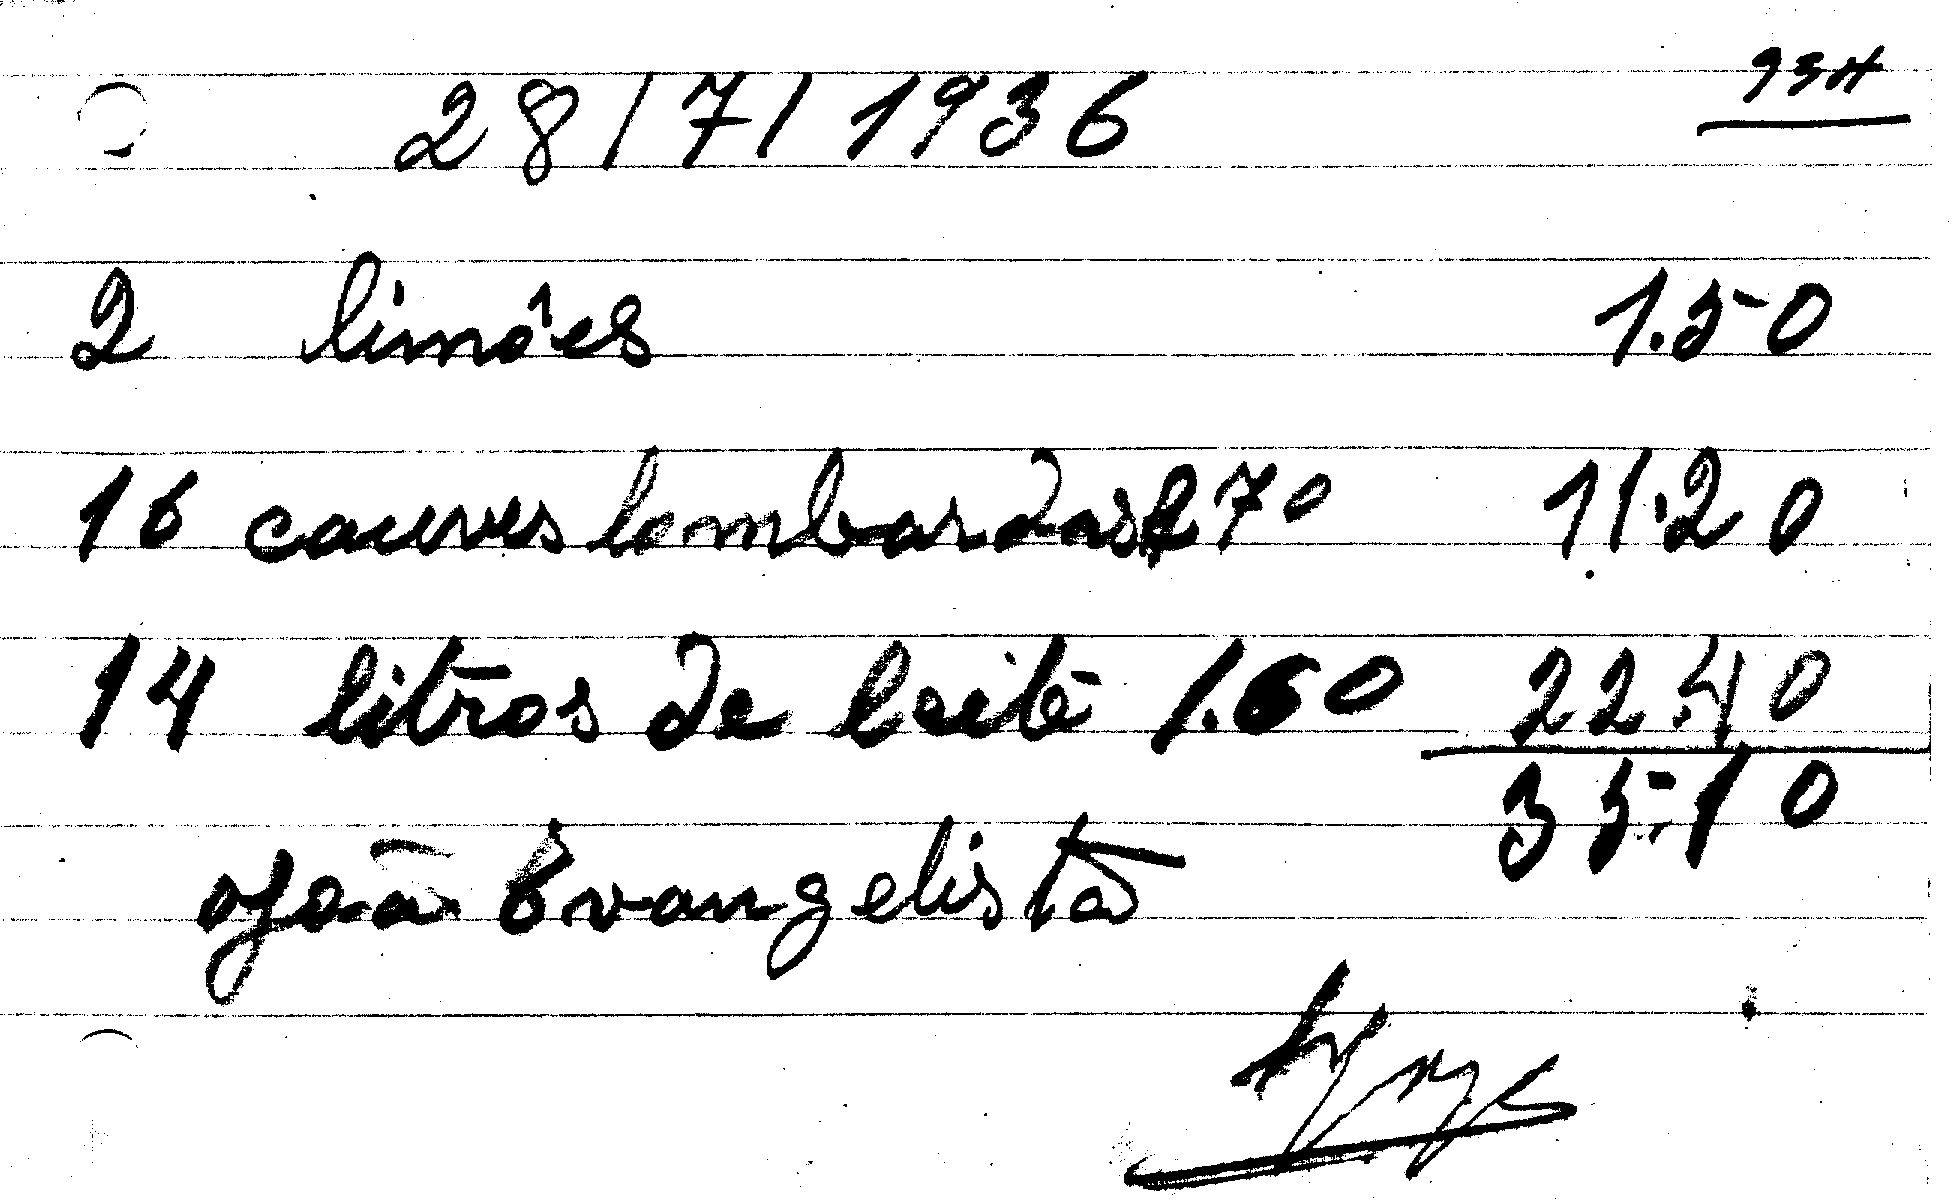 934
28/7/1936
2 limões 1.50
16 couves lombardas a 70 11.20
14 litros de leite 1.60 22.40
35.10
João Evangelista